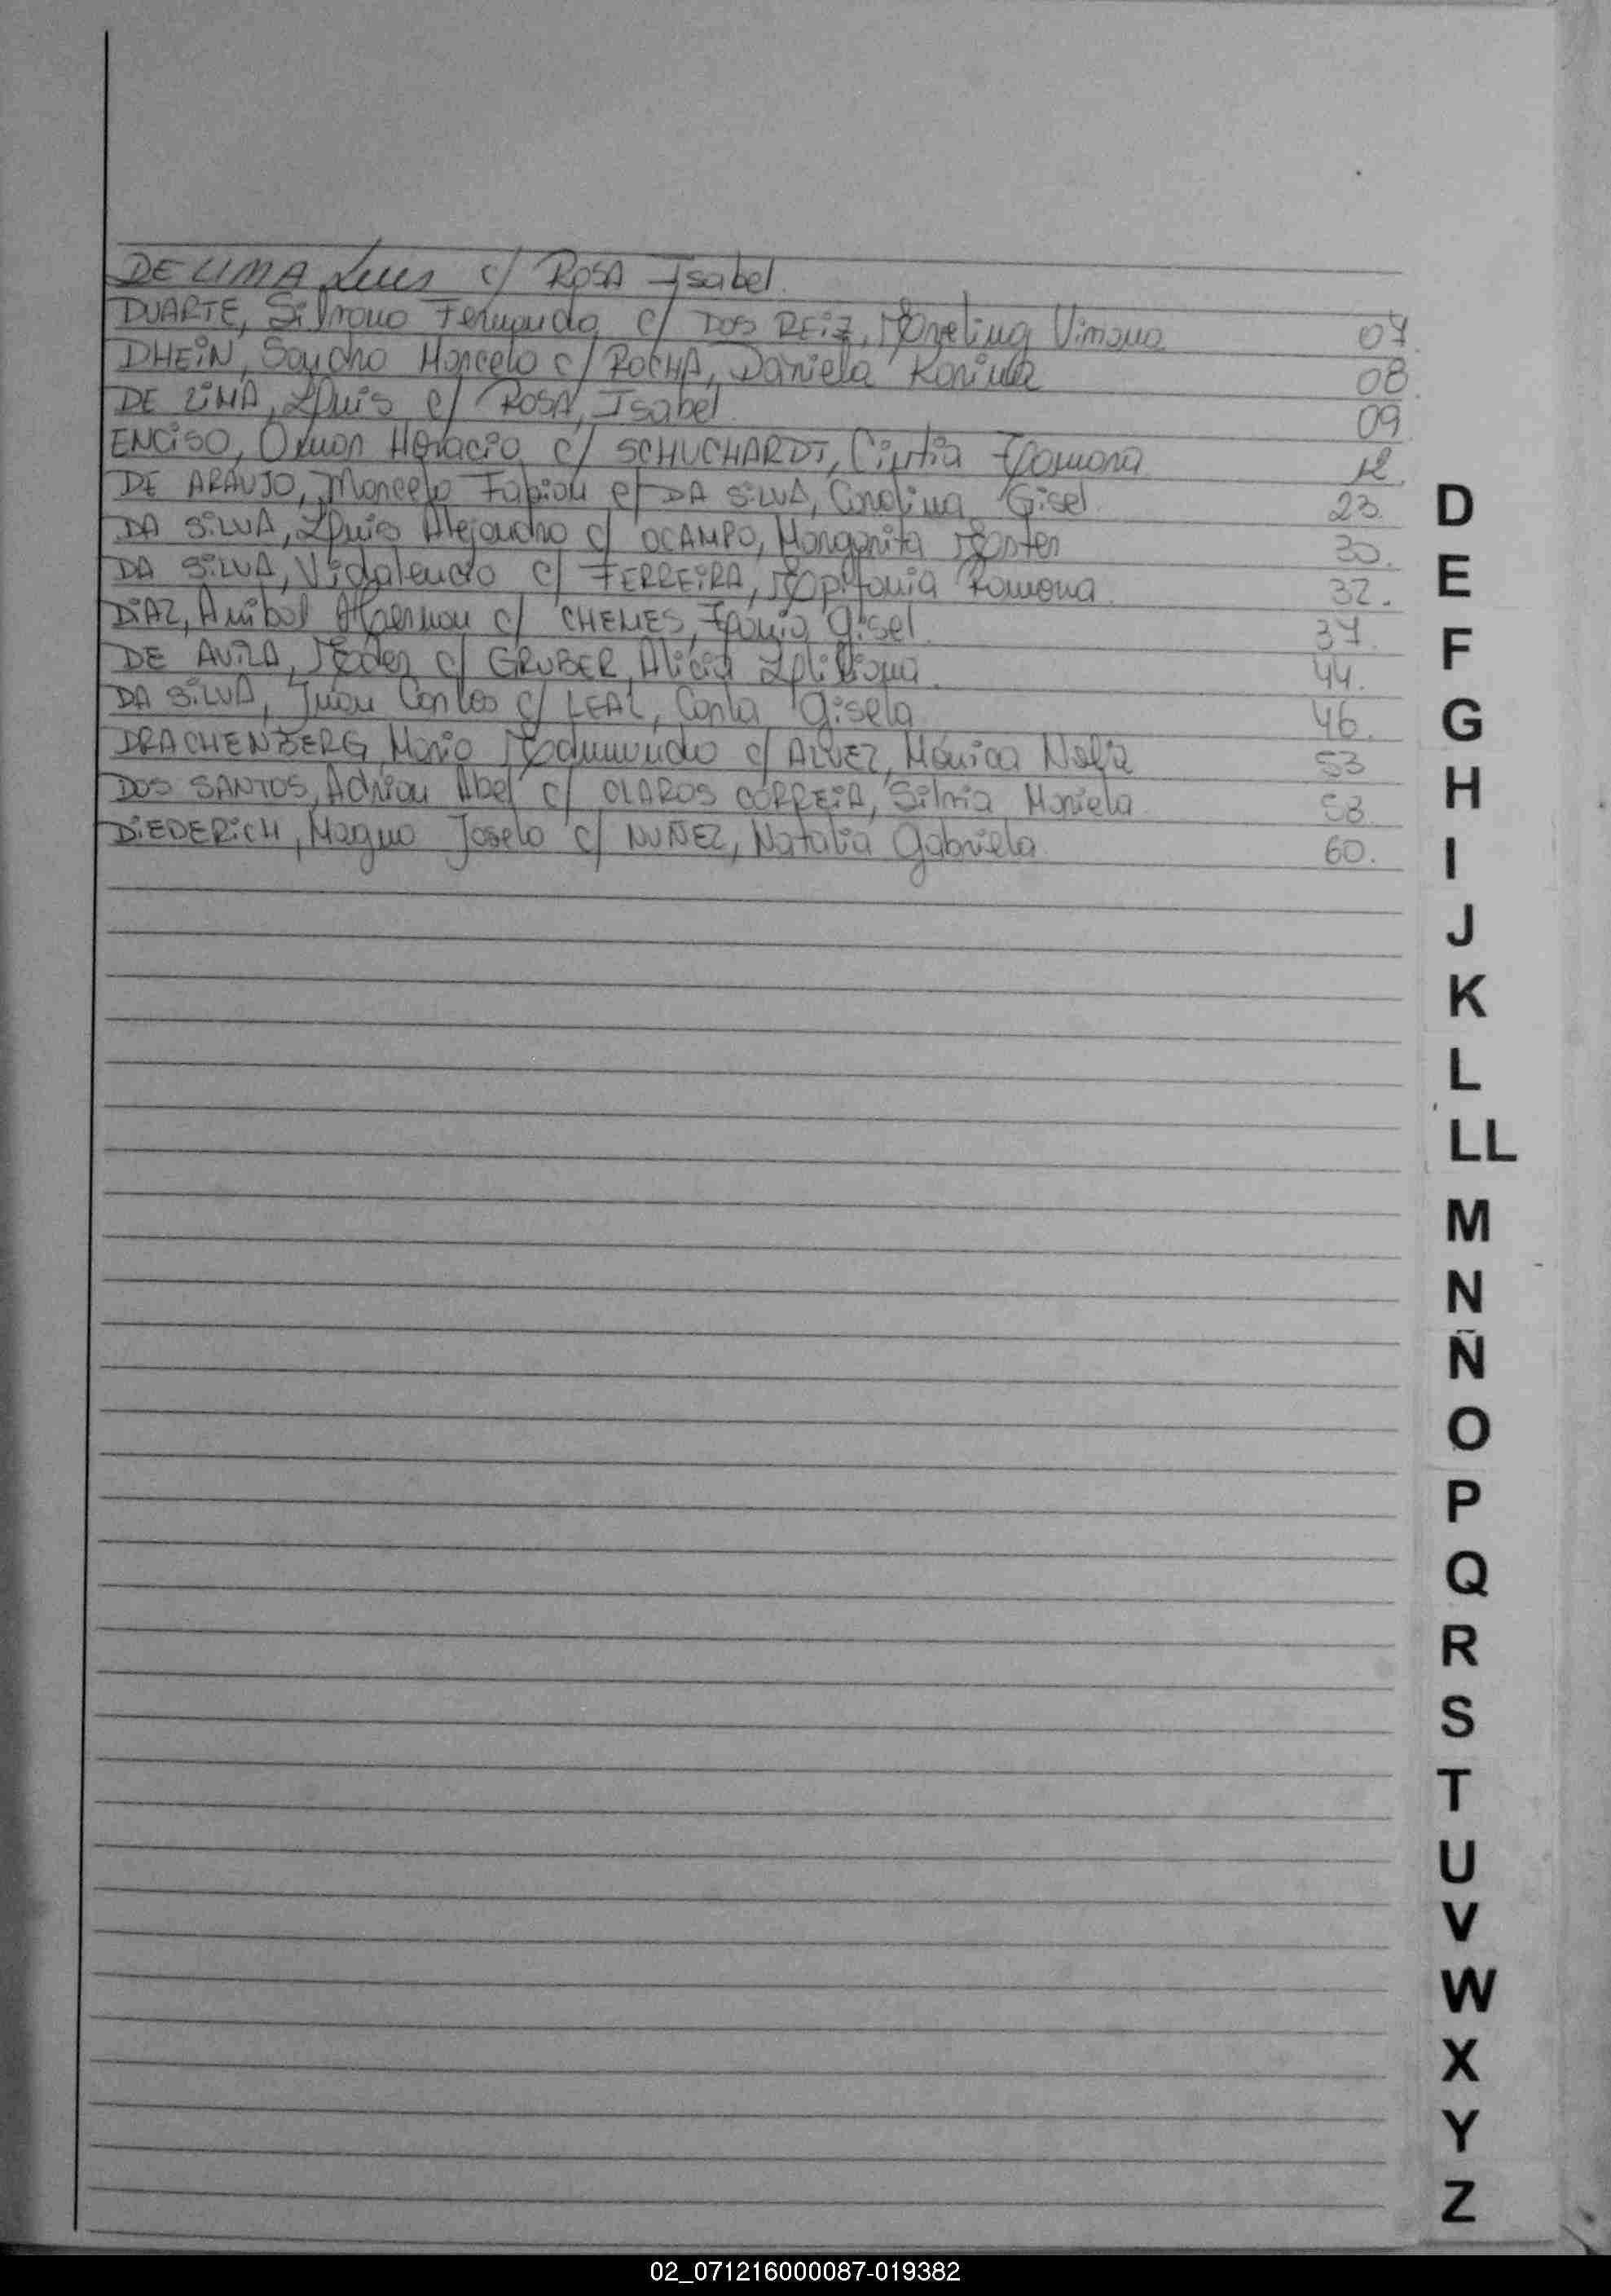 DE LIMA Luis c/ ROSA Isabel.
DUARTE, Silvano Fernando c/ DOS REIZ, Evelina Viviana 07.
DHEIN, Sandro Marcelo c/ ROCHA, Daniela Karina 08.
DE LIMA, Luis c/ ROSA, Isabel 09.
ENCISO, Omar Horacio c/ SCHUCHARDT, Cintia Ramona 12.
DE ARAUJO, Marcelo Fabian c/ DA SILVA, Carolina Gisel. 23.
DA SILVA, Luis Alejandro c/ OCAMPO, Margarita Ester 30.
DA SILVA, Vidalencio c/ FERREIRA, Epifania Ramona. 32.
DIAZ, Anibal c/ CHEMES, Tania Gisel. 37.
DE AVILA, Eder c/ GRUBER, Alicia Liliana. 44.
DA SILVA, Juan Carlos c/ LEAL, Carla Gisela 46.
DRACHENBERG, Mario Edmundo c/ ALVEZ, Mónica Nelia 53
DOS SANTOS, Adrian Abel c/ CLAROS CORREIA, Silvia Mariela 58.
DIEDERICH, Magno Joselo c/ NUÑEZ, Natalia Gabriela 60.
D
E
F
G
H
I
J
K
L
LL
M
N
Ñ
O
P
Q
R
S
T
U
V
W
X
Y
Z
02_071216000087-019382